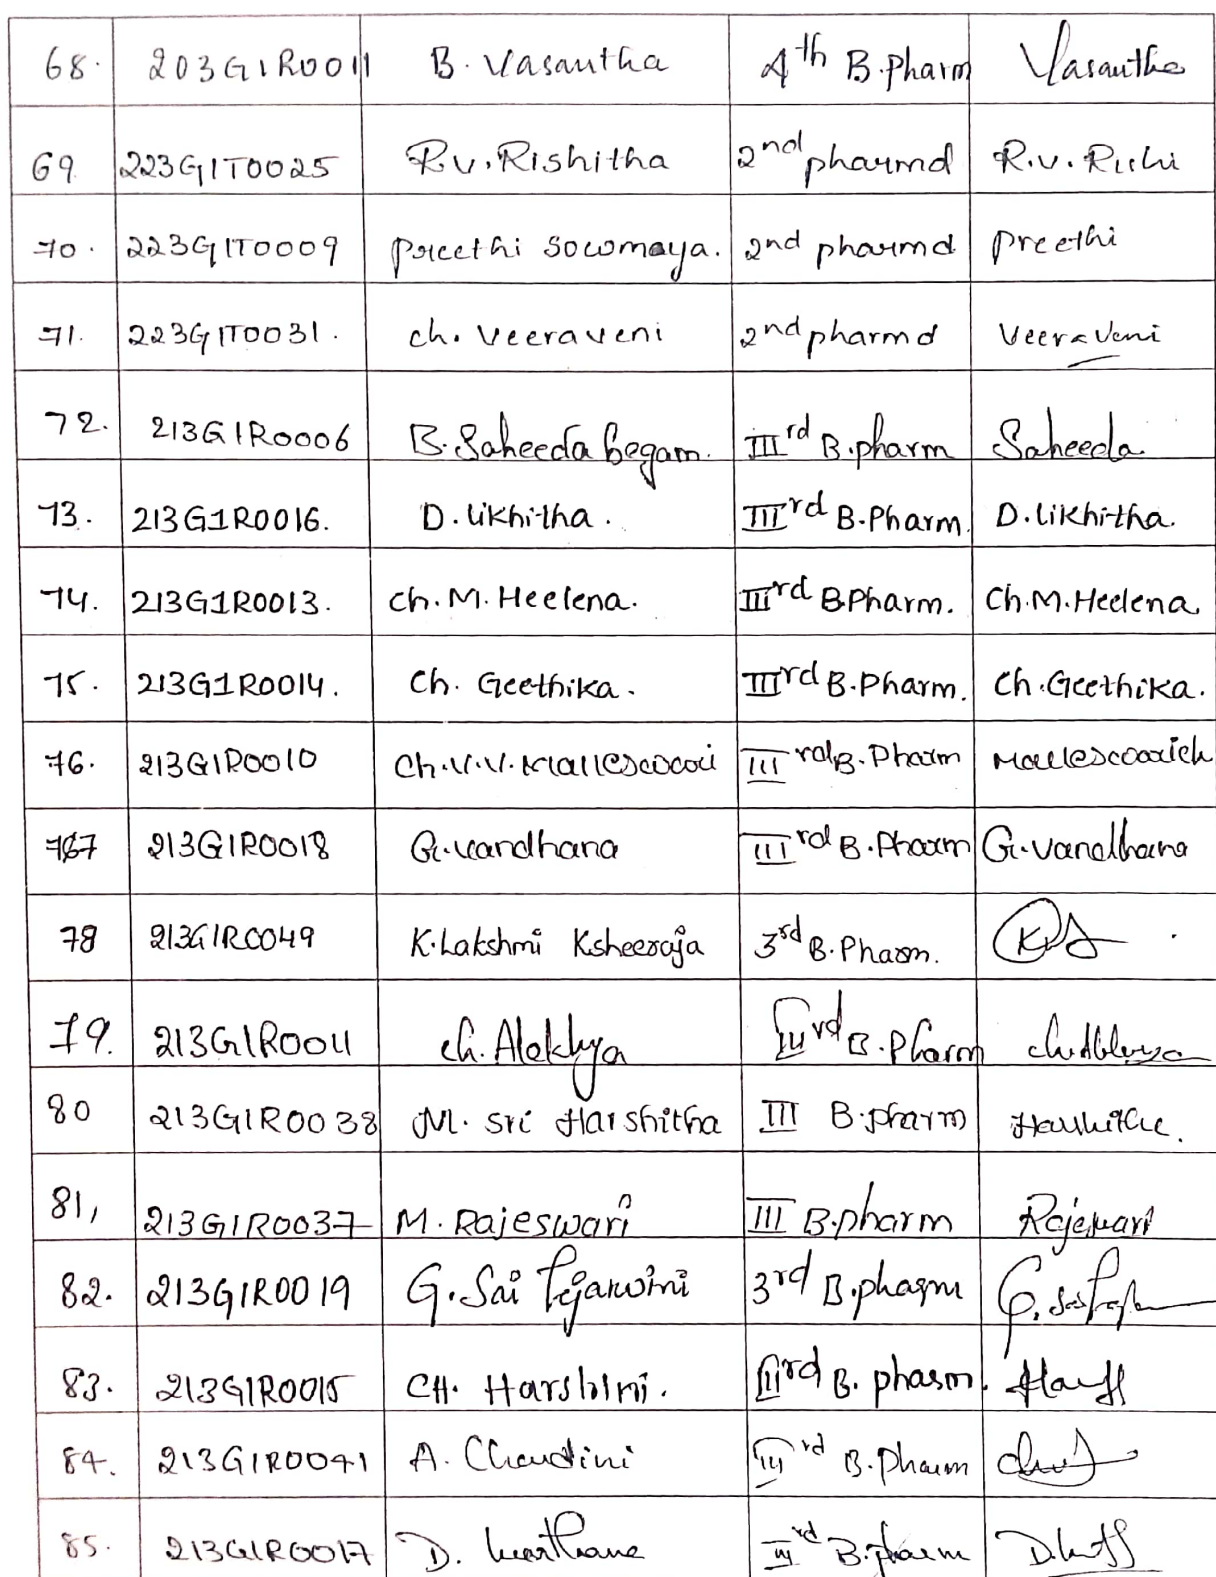 68. 203G1R0011 B. Vasantha 4th B.pharm Vasantha
69 223G1T0025 R.V. Rishitha 2nd pharmd R.V. Rishi
70. 223G1T0009 Preethi Sowmaya. 2nd pharmd preethi
71. 223G1T0031. ch. Veeraveni 2nd pharmd Veeraveni
72. 213G1R0006 B. Saheeda Begam. IIIrd B.pharm Saheeda
73. 213G1R0016. D. likhitha. IIIrd B.Pharm. D. likhitha.
74. 213G1R0013. Ch. M. Heelena. IIIrd B.Pharm. Ch.M.Heelena.
75. 213G1R0014. Ch. Geethika. IIIrd B.Pharm. Ch.Geethika.
76. 213G1R0010 Ch.V.V. Malleswari III rd B. Pharm
77 213G1R0018 G. Vandhana IIIrd B. Pharm G. Vandhana
78 213G1R0049 K. Lakshmi Ksheeraja 3rd B. Pharm.
79. 213G1R0011 ch. Alekhya IIIrd B. Pharm
80 213G1R0038 M. Sri Harshitha III B.pharm Harshitha.
81, 213G1R0037 M. Rajeswari III B.pharm Rajeswari
82. 213G1R0019 G. Sai Tejaswini 3rd B.pharm
83. 213G1R0015 CH. Harshini. IIIrd B. pharm.
84. 213G1R0041 A. Chandini IIIrd B. Pharm
85. 213G1R0017 D. IIIrd B.pharm